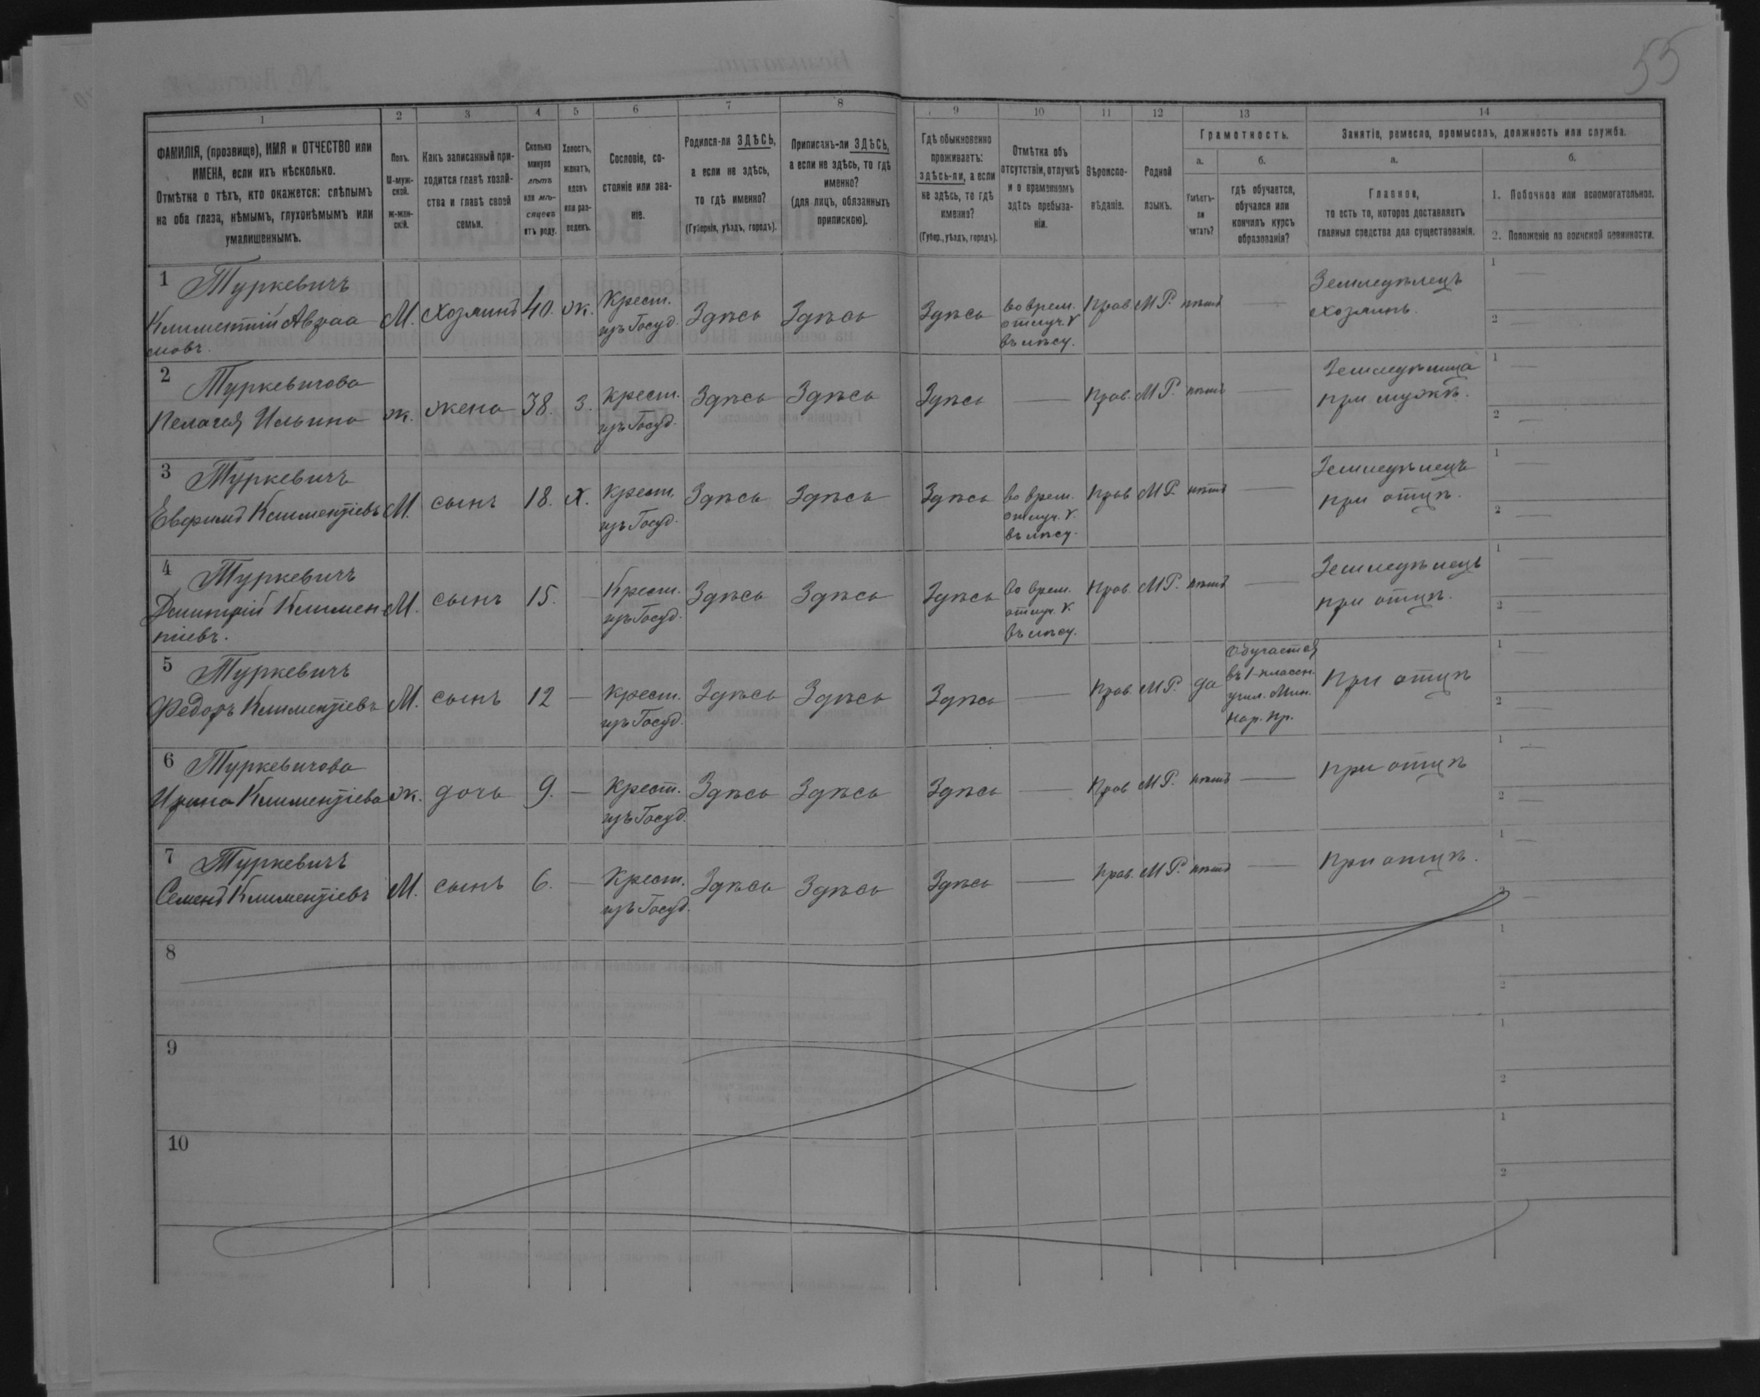 55
1 2 3 4 5 6 7 8 9 10 11 12 13 14
ФАМИЛІЯ, (прозвище), ИМЯ и ОТЧЕСТВО или
ИМЕНА, если ихъ нѣсколько.
Отмѣтка о тѣхъ, кто окажется: слѣпымъ
на оба глаза, нѣмымъ, глухонѣмымъ или
умалишеннымъ.
Полъ.
М-муж-
ской.
ж-жен-
скій.
Какъ записанный при-
ходится главѣ хозяй-
ства и главѣ своей
семьи.
Сколько
минуло
лѣтъ
или мѣ-
сяцевъ
отъ роду.
Холостъ,
женатъ,
вдовъ
или раз-
веденъ.
Сословіе, со-
стояніе или зва-
ніе.
Родился-ли ЗДѢСЬ,
а если не здѣсь,
то гдѣ именно?
(Губернія, уѣздъ, городъ).
Приписанъ-ли ЗДѢСЬ,
а если не здѣсь, то гдѣ
именно?
(для лицъ, обязанныхъ
припискою).
Гдѣ обыкновенно
проживаетъ:
здѣсь-ли, а если
не здѣсь, то гдѣ
именно?
(Губер., уѣздъ, городъ).
Отмѣтка объ
отсутствіи, отлучкѣ
и о временномъ
здѣсь пребыва-
ніи.
Вѣроиспо-
вѣданіе.
Родной
языкъ.
Грамотность.
а.
Умѣетъ-
ли
читать?
б.
гдѣ обучается,
обучался или
кончилъ курсъ
образованія?
Занятіе, ремесло, промыселъ, должность или служба.
а.
Главное,
то есть то, которое доставляетъ
главныя средства для существованія.
б.
1. Побочное или вспомогательное.
2. Положеніе по воинской повинности.
1 Туркевичъ
Климентій Авраа
мовъ.
М. Хозяинъ 40. ж. Крест.
изъ Госуд. Здѣсь Здѣсь Здѣсь во врем.
отлуч. V
въ лѣсу. Прав. М.Р. нѣтъ — Земледѣлецъ
хозяинъ.
1 —
2 —
2 Туркевичова
Пелагея Ильина
ж. жена 38 з. крест.
изъ Госуд. Здѣсь Здѣсь Здѣсь — прав. М.Р. нѣтъ — Земледѣлица
при мужѣ.
1 —
2 —
3 Туркевичъ
Евфимъ Климентіевъ
М. сынъ 18. Х. крест.
изъ Госуд. Здѣсь Здѣсь Здѣсь во врем.
отлуч. V.
въ лѣсу. прав. М.Р. нѣтъ — Земледѣлецъ
при отцѣ.
1 —
2 —
4 Туркевичъ
Димитрій Климен-
тіевъ.
М. сынъ 15. — Крест.
изъ Госуд. Здѣсь Здѣсь Здѣсь во врем.
отлуч. V.
въ лѣсу. прав. М.Р. нѣтъ — Земледѣлецъ
при отцѣ.
1 —
2 —
5 Туркевичъ
Федоръ Климентіевъ
М. сынъ 12 — крест.
изъ Госуд. Здѣсь Здѣсь Здѣсь — прав. М.Р. да Обучается
въ 1-классн.
учил. Мин.
Нар. Пр. При отцѣ
1 —
2 —
6 Туркевичова
Ирина Климентіева
ж. дочь 9. — Крест.
изъ Госуд. Здѣсь Здѣсь Здѣсь — Прав. М.Р. нѣтъ — при отцѣ
1 —
2 —
7 Туркевичъ
Семенъ Климентіевъ
М. сынъ 6. — Крест.
изъ Госуд. Здѣсь Здѣсь Здѣсь — прав. М.Р. нѣтъ — При отцѣ.
1 —
2 —
8
1
2
9
1
2
10
1
2